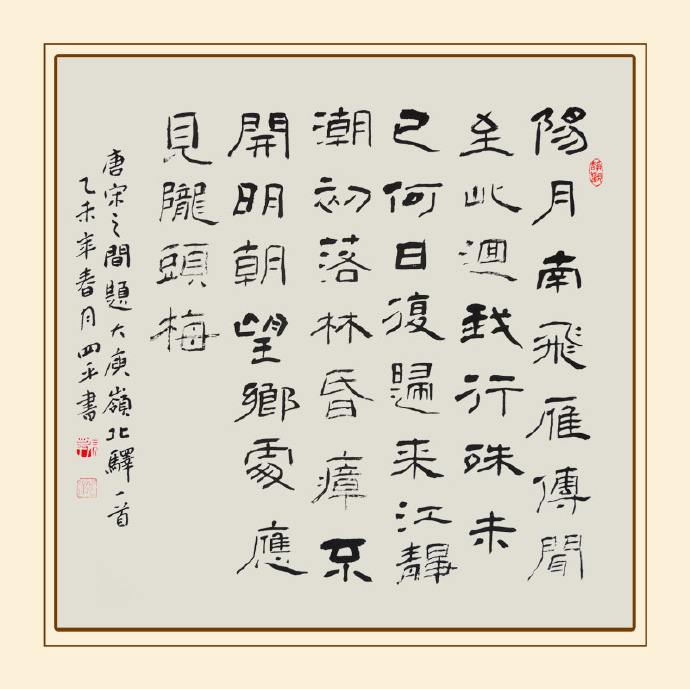 陽月南飛雁傳聞
至此迴我行殊未
已何日復歸来江靜
潮初落林昏瘴不
開明朝望鄉處應
見隴頭梅
唐宋之間題大庾嶺北驛一首
乙未年春月四平書